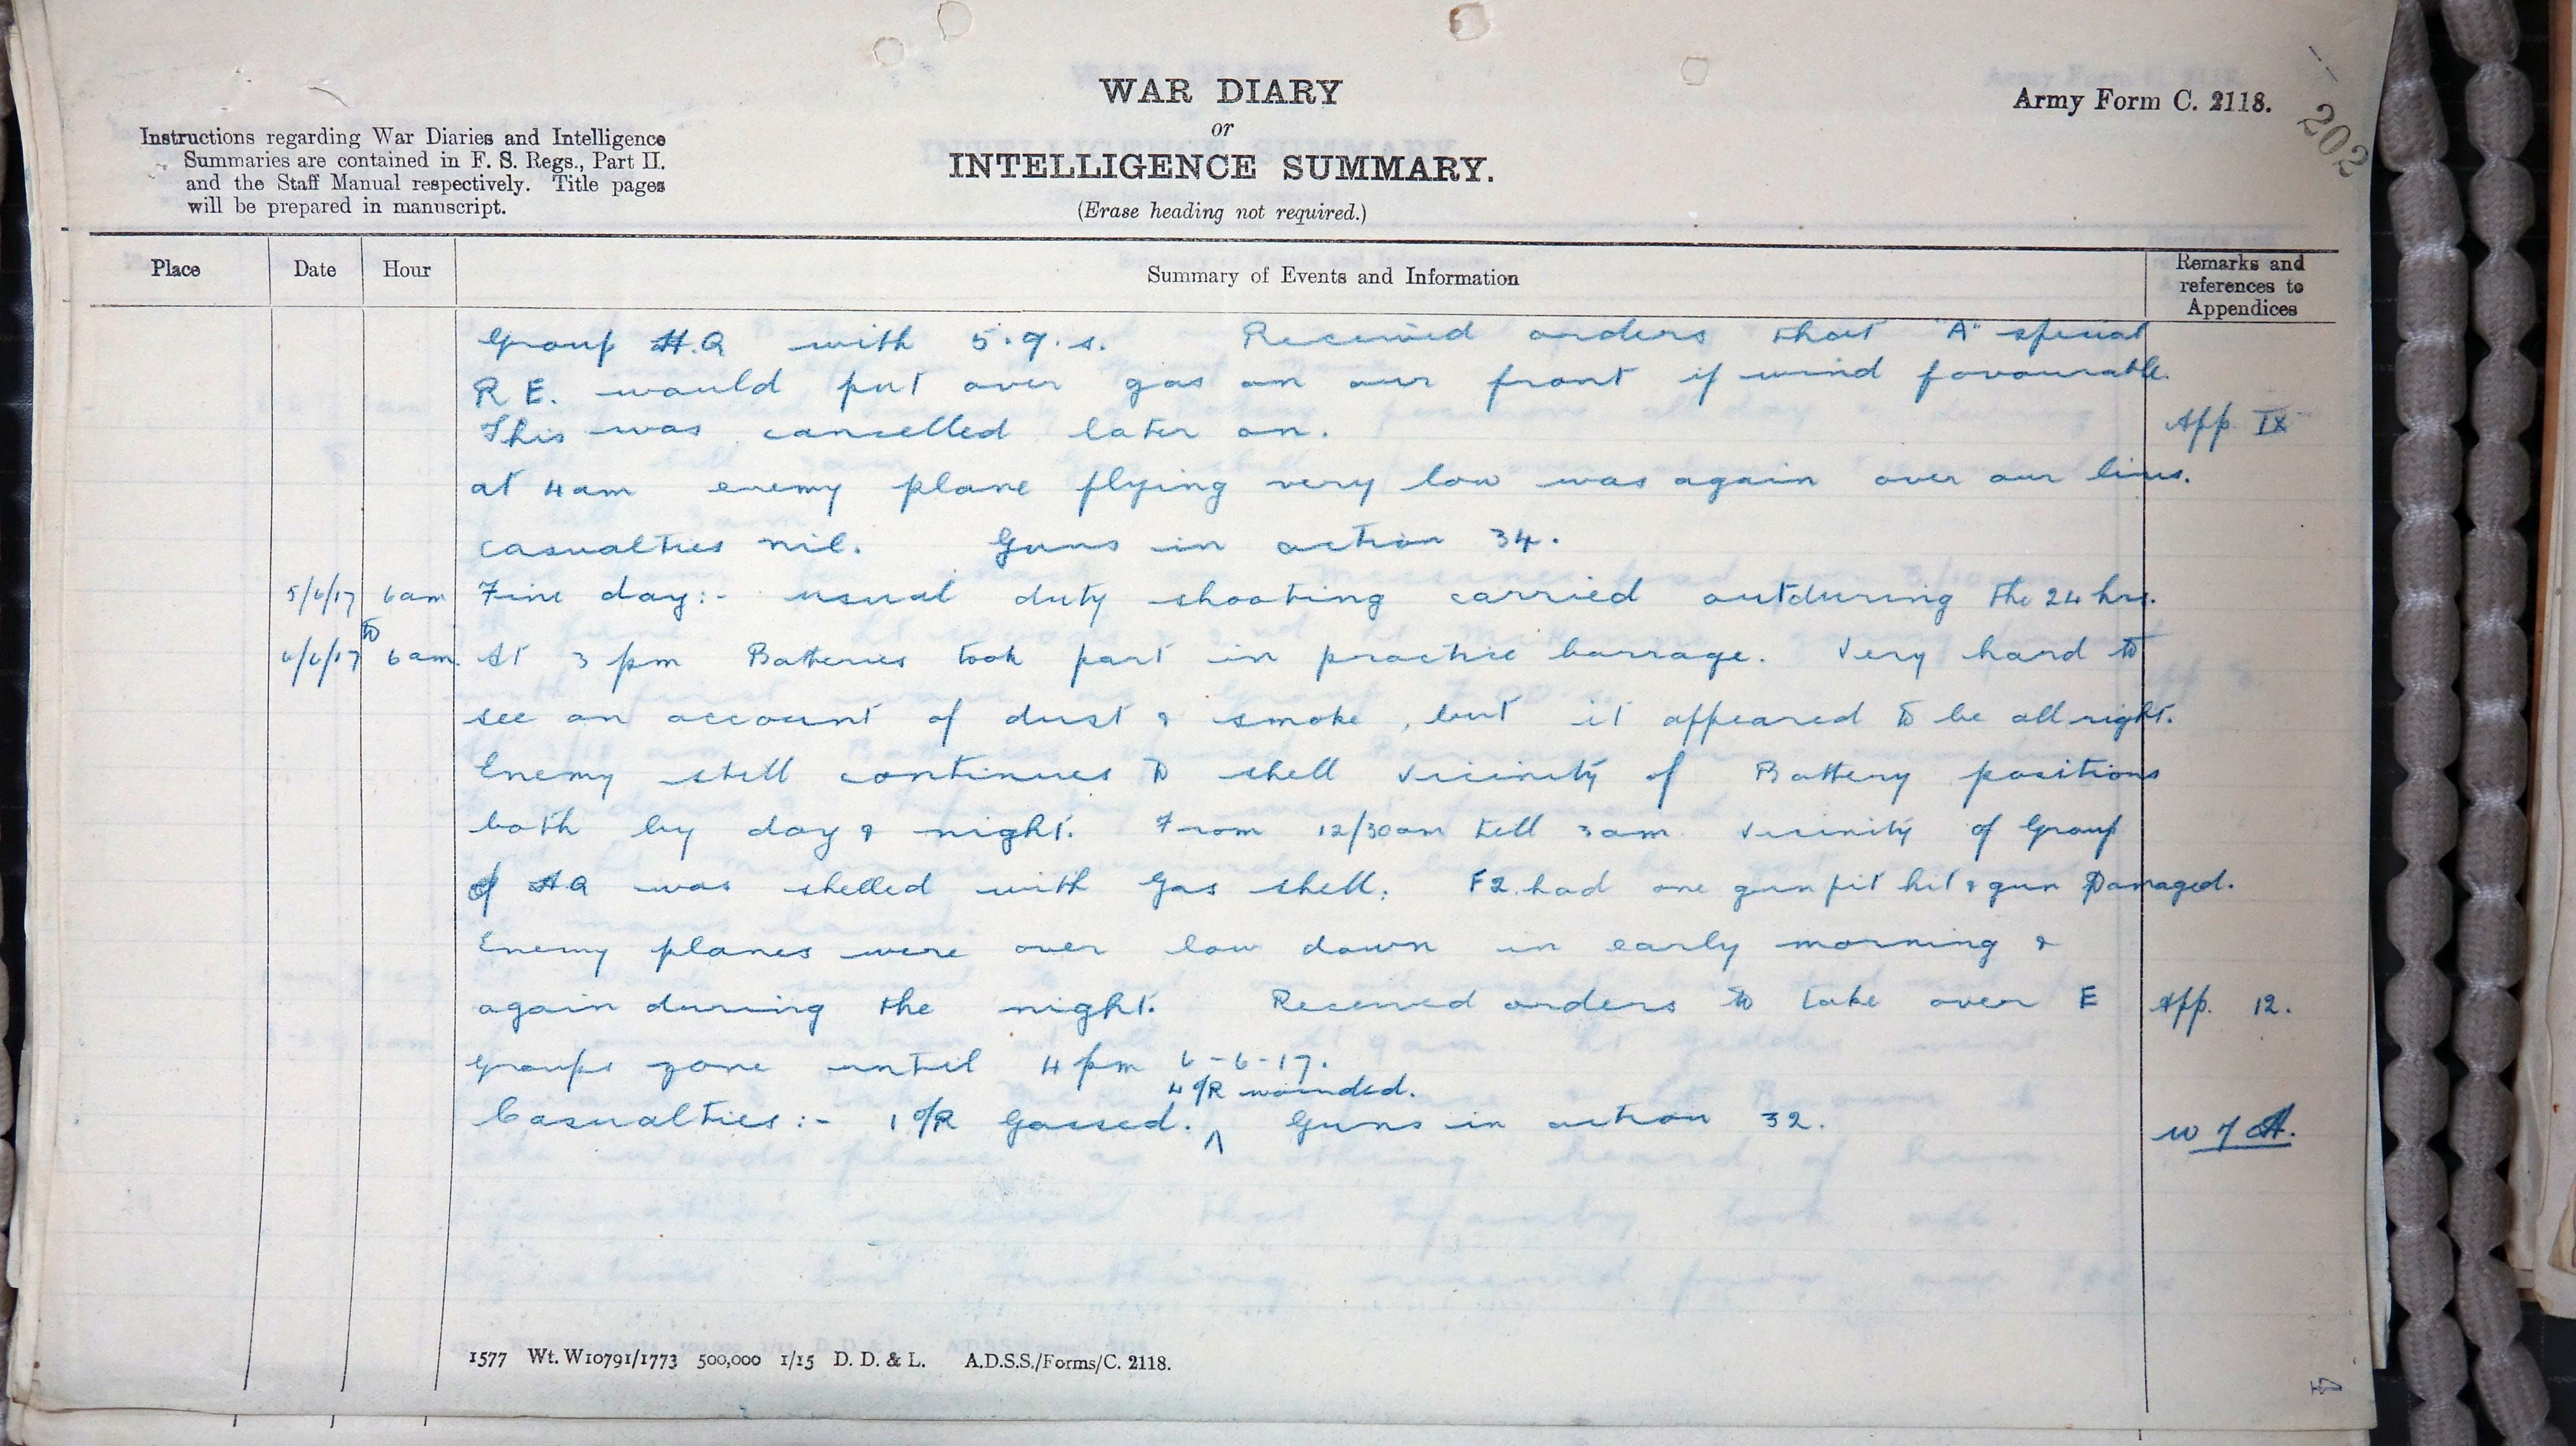 WAR DIARY
or
INTELLIGENCE SUMMARY.
(Erase heading not required.)
Army Form C. 2118.
202
Instructions regarding War Diaries and Intelligence
Summaries are contained in F. S. Regs., Part II.
and the Staff Manual respectively. Title pages
will be prepared in manuscript.
Place Date Hour Summary of Events and Information Remarks and
references to
Appendices
Group H.Q with 5.9.s. Received orders that "A" special
R E. would put over gas on our front if wind favourable.
This was cancelled later on. App IX
at 4am enemy plane flying very low was again over our lines.
casualties nil. Guns in action 34.
5/6/17 6am Fine day:- usual duty shooting carried outduring the 24 hrs.
to
6/6/17 6am. At 3 pm Batteries took part in practice barrage. Very hard to
see on account of dust & smoke, but it appeared to be all right.
Enemy still continues to shell vicinity of Battery positions
both by day & night. From 12/30am till 3am vicinity of Group
of HQ was shelled with Gas shell. F2. had one gun pit hit & gun Damaged.
Enemy planes were over low down in early morning &
again during the night. Received orders to take over E App. 12.
groups zone until 4 pm 6-6-17.
4 O/R wounded.
Casualties:- 1 O/R Gassed. ʌ Guns in action 32.
1577 Wt. W10791/1773 500,000 1/15 D. D. & L. A.D.S.S./Forms/C. 2118.